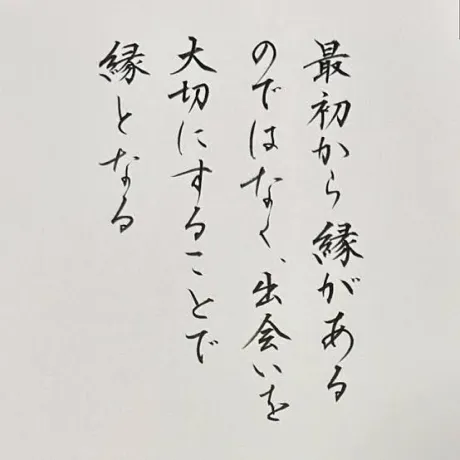 最初から縁がある
のではなく、出会いを
大切にすることで
縁となる